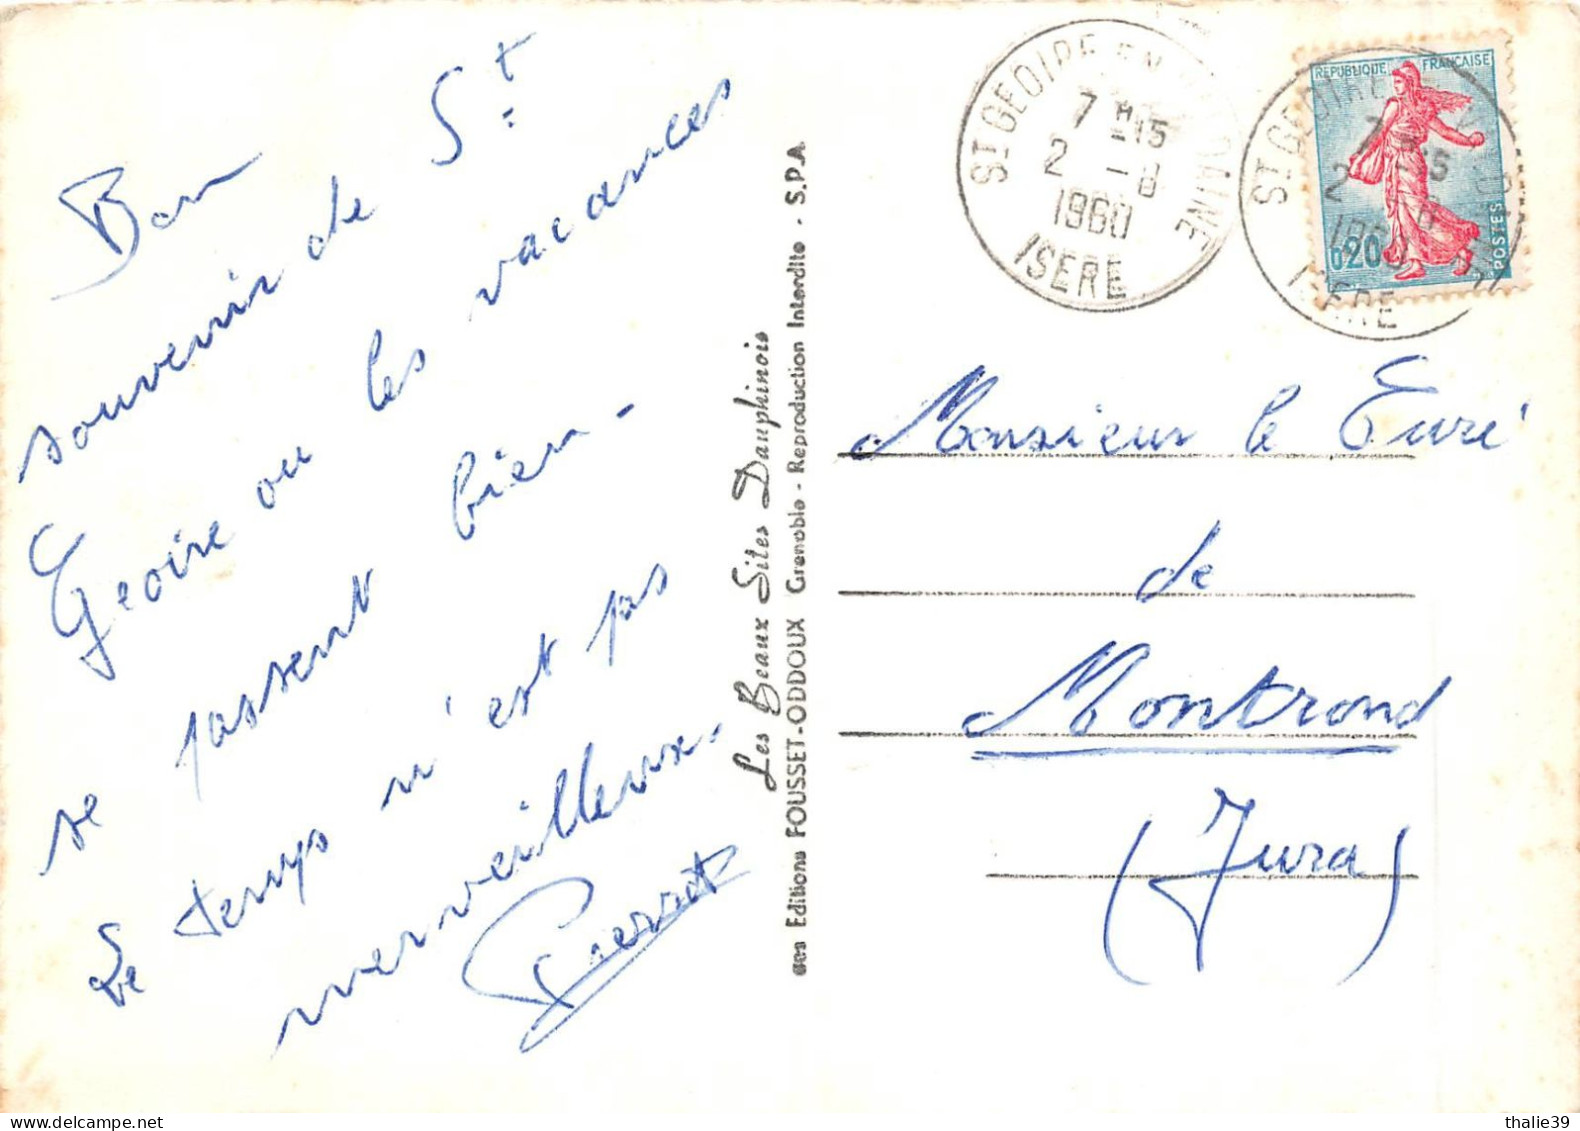 Bon
souvenir de St
Geoire ou les vacances
se passent bien -
Le temps n'est pas
merveilleux.
Pierrot
Les Beaux Sites Dauphinois
des Editions FOUSSET-ODDOUX Grenoble - Reproduction Interdite - S.P.A
ST GEOIRE EN
7 H 15
2 - 8
1960
ISERE
REPUBLIQUE FRANCAISE
0,20
POSTES
ST GEOIRE
1960
Monsieur le Curé
de
Montrond
(Jura)
thalie39